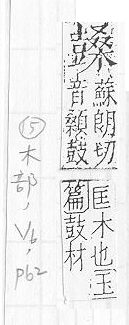 蘇朗切
音顙鼓
匡木也玉
篇鼓材
⑮木部, V6, p62